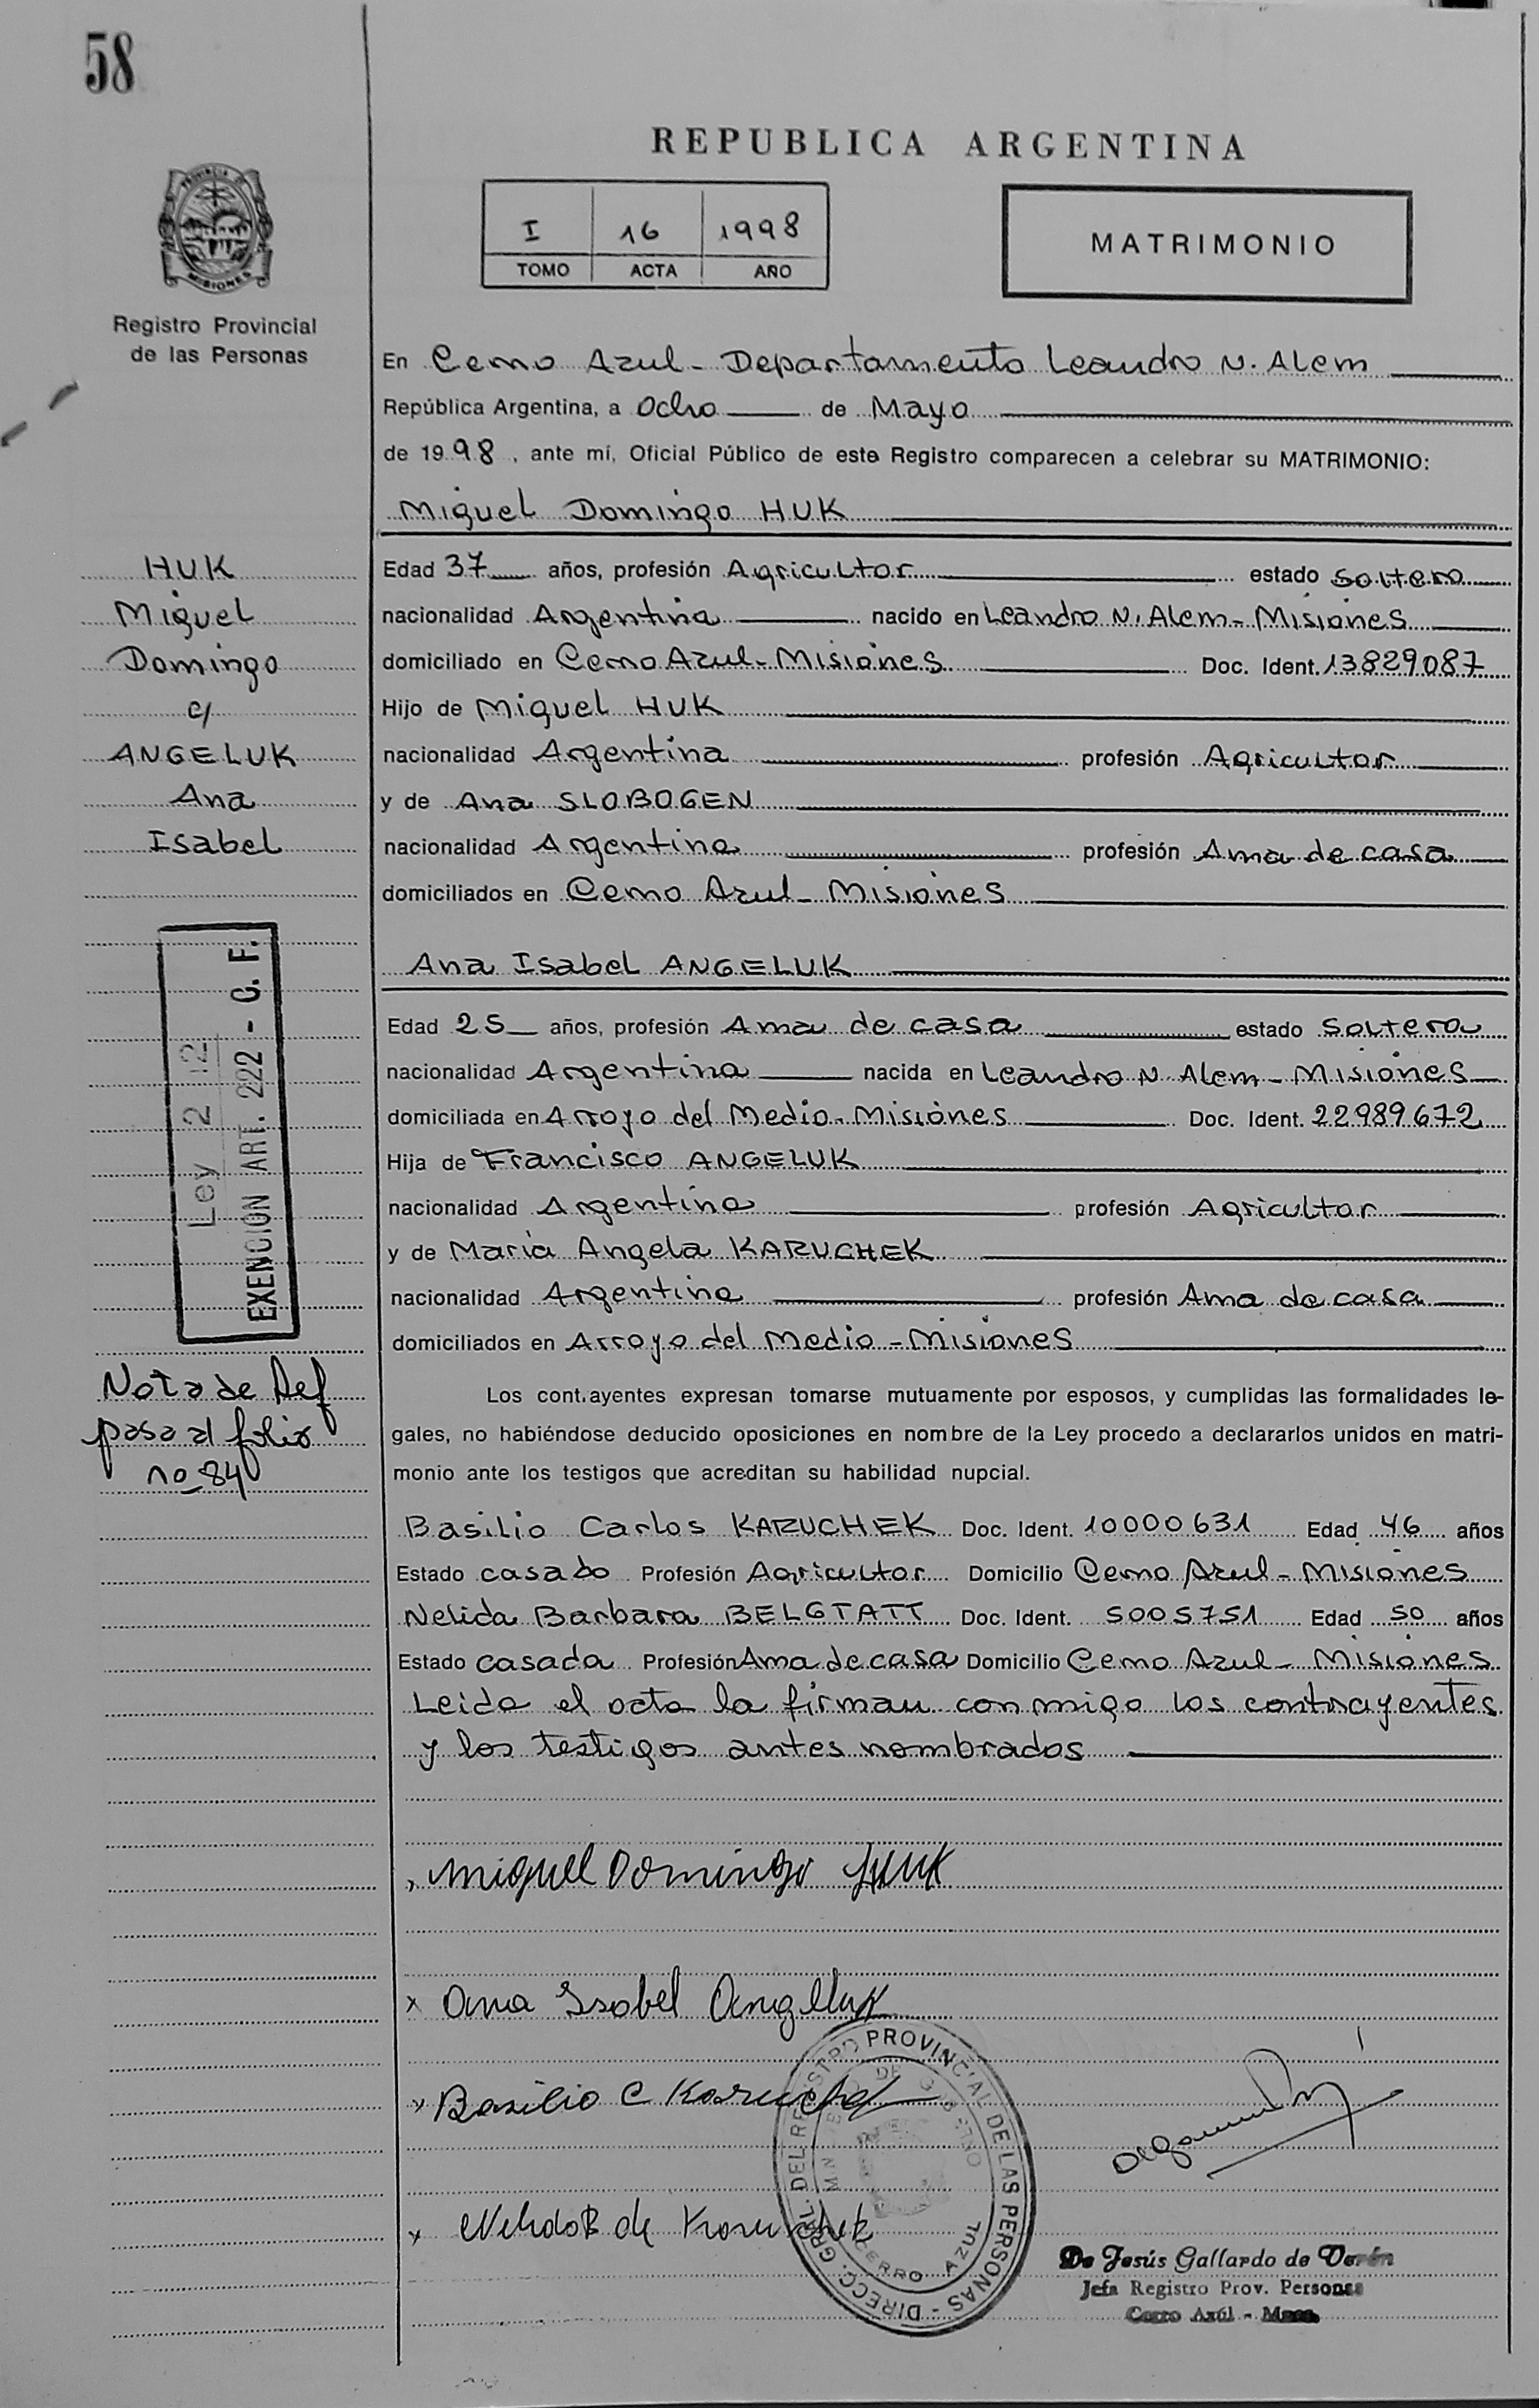 58
REPUBLICA ARGENTINA
I 16 1998
TOMO ACTA AÑO
MATRIMONIO
PROVINCIA DE MISIONES
Registro Provincial
de las Personas
En Cerro Azul - Departamento Leandro N. Alem
República Argentina, a Ocho de Mayo
de 1998, ante mí, Oficial Público de este Registro comparecen a celebrar su MATRIMONIO:
Miguel Domingo HUK
Edad 37 años, profesión Agricultor estado soltero
nacionalidad Argentina nacido en Leandro N. Alem - Misiones
domiciliado en Cerro Azul - Misiones Doc. Ident. 13829087
Hijo de Miguel HUK
nacionalidad Argentina profesión Agricultor
y de Ana SLOBOGEN
nacionalidad Argentina profesión Ama de casa
domiciliados en Cerro Azul - Misiones
Ana Isabel ANGELUK
Edad 25 años, profesión Ama de casa estado soltera
nacionalidad Argentina nacida en Leandro N. Alem - Misiones
domiciliada en Arroyo del Medio - Misiones Doc. Ident. 22989672
Hija de Francisco ANGELUK
nacionalidad Argentina profesión Agricultor
y de Maria Angela KARUCHEK
nacionalidad Argentina profesión Ama de casa
domiciliados en Arroyo del Medio - Misiones
Los cont.ayentes expresan tomarse mutuamente por esposos, y cumplidas las formalidades le-
gales, no habiéndose deducido oposiciones en nombre de la Ley procedo a declararlos unidos en matri-
monio ante los testigos que acreditan su habilidad nupcial.
Basilio Carlos KARUCHEK Doc. Ident. 10000631 Edad 46 años
Estado casado Profesión Agricultor Domicilio Cerro Azul - Misiones
Nelida Barbara BELGTATT Doc. Ident. 5005751 Edad 50 años
Estado casada Profesión Ama de casa Domicilio Cerro Azul - Misiones
Leida el acta la firman conmigo los contrayentes
y los testigos antes nombrados
HUK
Miguel
Domingo
c/
ANGELUK
Ana
Isabel
Ley 2 12
EXENCION ART. 222 - C. F.
Nota de Ref
pasa al folio
nº 84
Miguel Domingo HUK
x Ana Isabel Angeluk
x Basilio C Karuchek
x Nelida B de Karuchek
DIRECC. GRAL. DEL REGISTRO PROVINCIAL DE LAS PERSONAS
CERRO AZUL
De Jesús Gallardo de Verón
Jefa Registro Prov. Personas
Cerro Azúl - Mnes.